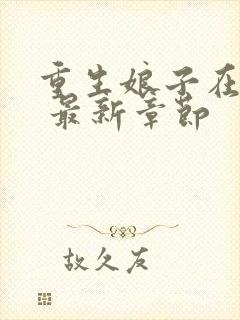 重生娘子在
最新章节
故久友